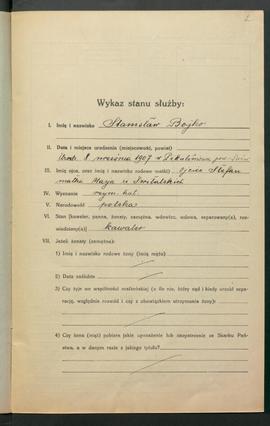 2
Wykaz stanu służby:
I. Imię i nazwisko Stanisław Bojko
II. Data i miejsce urodzenia (miejscowość, powiat)
Urodz. 8 września 1907 w
III. Imię ojca, oraz imię i nazwisko rodowe matki) ojciec Stefan
matka
IV. Wyznanie rzym. kat.
V. Narodowość polska
VI. Stan (kawaler, panna, żonaty, zamężna, wdowiec, wdowa, separowany(a), roz-
wiedziony(a) kawaler
VII. Jeżeli żonaty (zamężna):
1) Imię i nazwisko rodowe żony (męża)
2) Data zaślubin
3) Czy żyje we wspólności małżeńskiej (o ile nie, który sąd i kiedy orzekł sepa-
rację, względnie rozwód i czy z obowiązkiem utrzymania żony)
4) Czy żona (mąż) pobiera jakie uposażenie lub zaopatrzenie ze Skarbu Pań-
stwa, a w danym razie z jakiego tytułu?